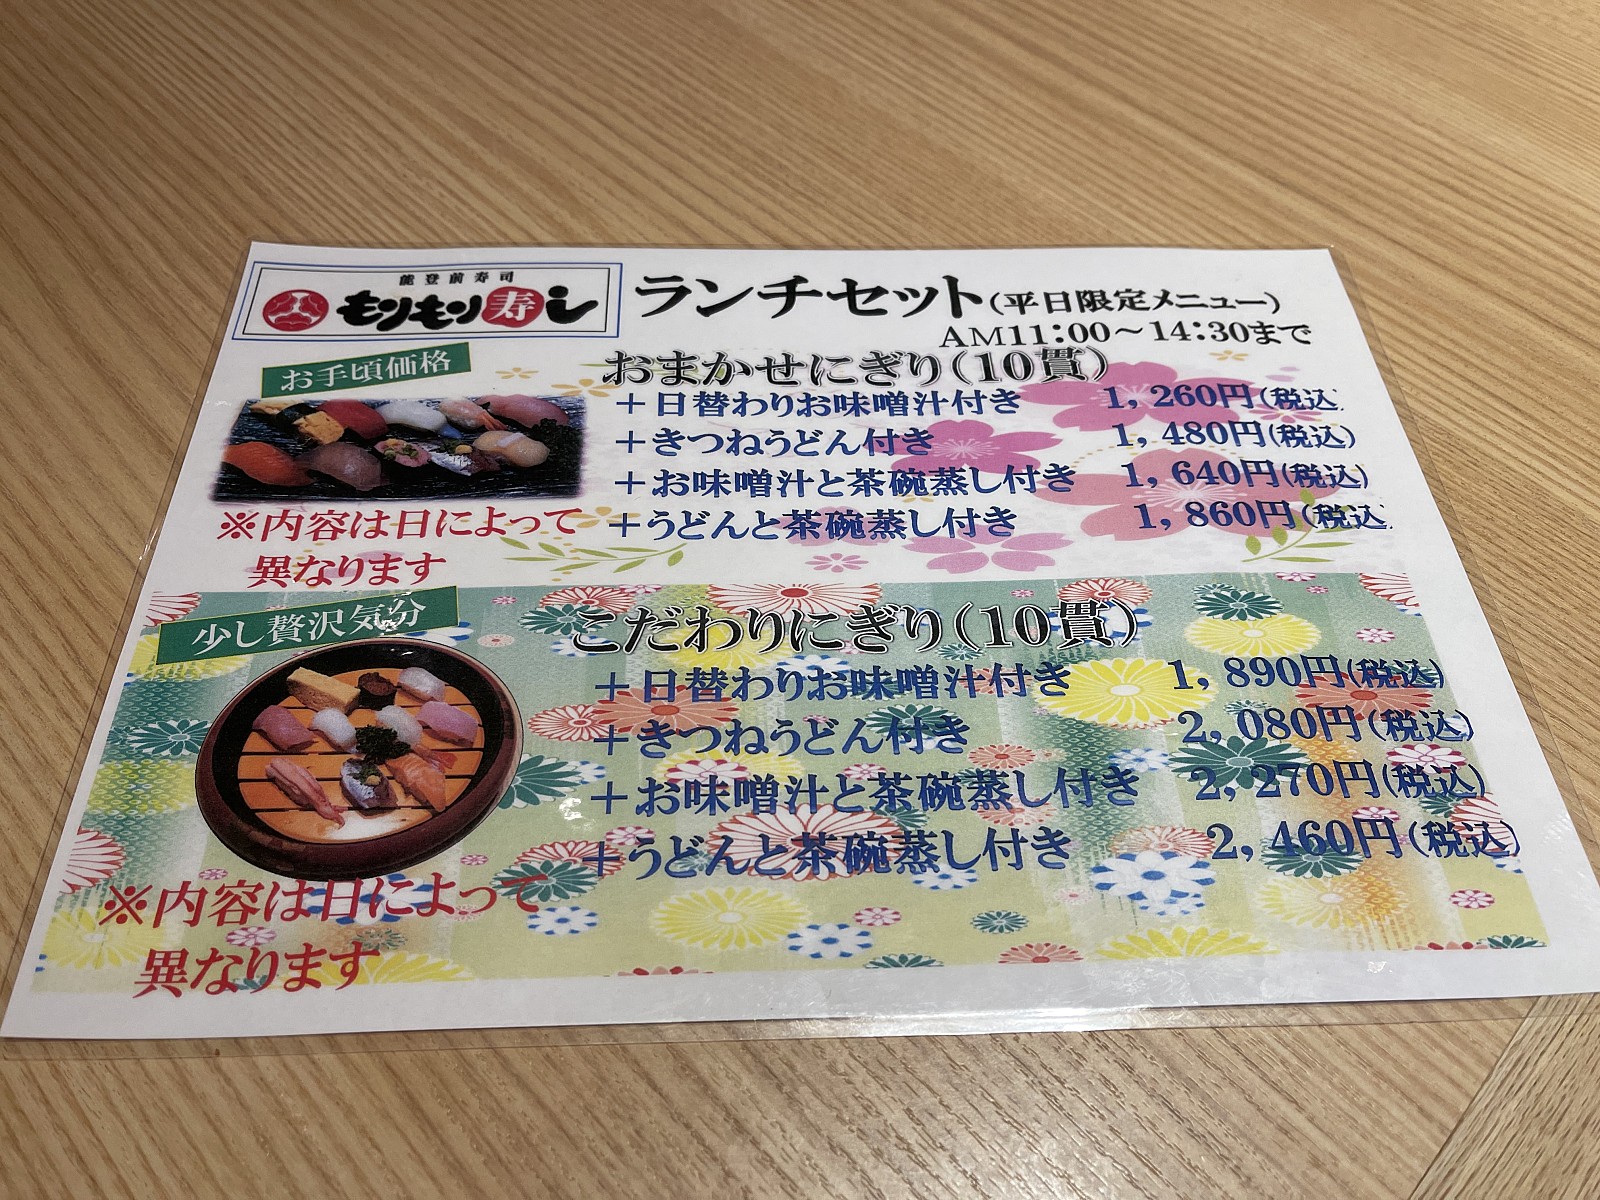 能登前寿司
もりもり寿し
ランチセット(平日限定メニュー)
AM11:00～14:30まで
お手頃価格
おまかせにぎり(10貫)
＋日替わりお味噌汁付き 1,260円(税込)
＋きつねうどん付き 1,480円(税込)
＋お味噌汁と茶碗蒸し付き 1,640円(税込)
＋うどんと茶碗蒸し付き 1,860円(税込
※内容は日によって
異なります
少し贅沢気分
こだわりにぎり(10貫)
＋日替わりお味噌汁付き 1,890円(税込)
＋きつねうどん付き 2,080円(税込)
＋お味噌汁と茶碗蒸し付き 2,270円(税込)
＋うどんと茶碗蒸し付き 2,460円(税込)
※内容は日によって
異なります